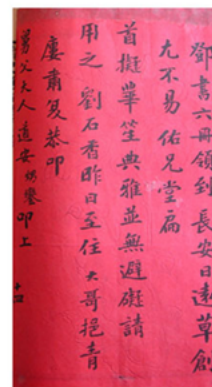 鄧書六冊領到長安日遠草創
尤不易佑兄堂扁
首擬華笙典雅並無避礙請
用之劉石香昨日至住大哥挹青
廔肅复恭叩
舅父大人道安 鑒叩上
十四